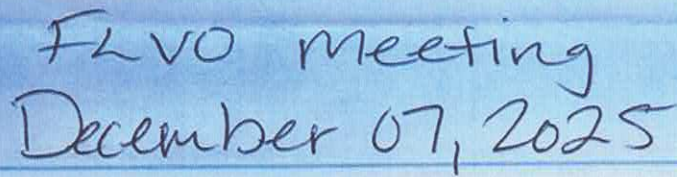 FLVO Meeting
December 07, 2025